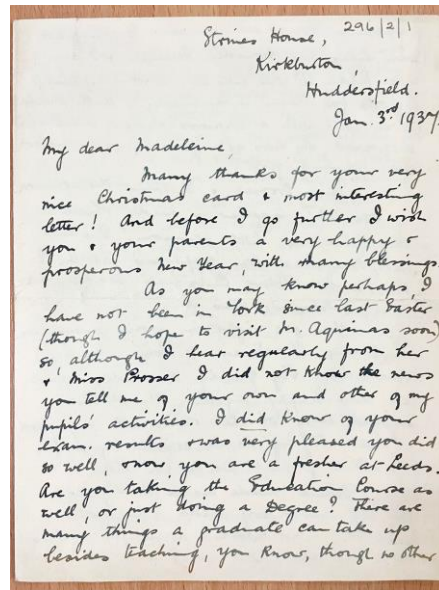 296/2/1
Strines House,
Kirkburton,
Huddersfield.
Jan. 3rd 1937.
My dear Madeleine,
Many thanks for your very
nice Christmas card & most interesting
letter! And before I go further I wish
you & your parents a very happy &
prosperous New Year, with many blessings
As you may know perhaps, I
have not been in York since last Easter
(though I hope to visit M. Aquinas soon)
so, although I hear regularly from her
& Miss Prosser I did not know the news
you tell me of your own and other of my
pupils' activities. I did know of your
exam. results & was very pleased you did
so well, & now you are a fresher at Leeds.
Are you taking the Education Course as
well, or just doing a Degree? There are
many things a graduate can take up
besides teaching, you know, though no other